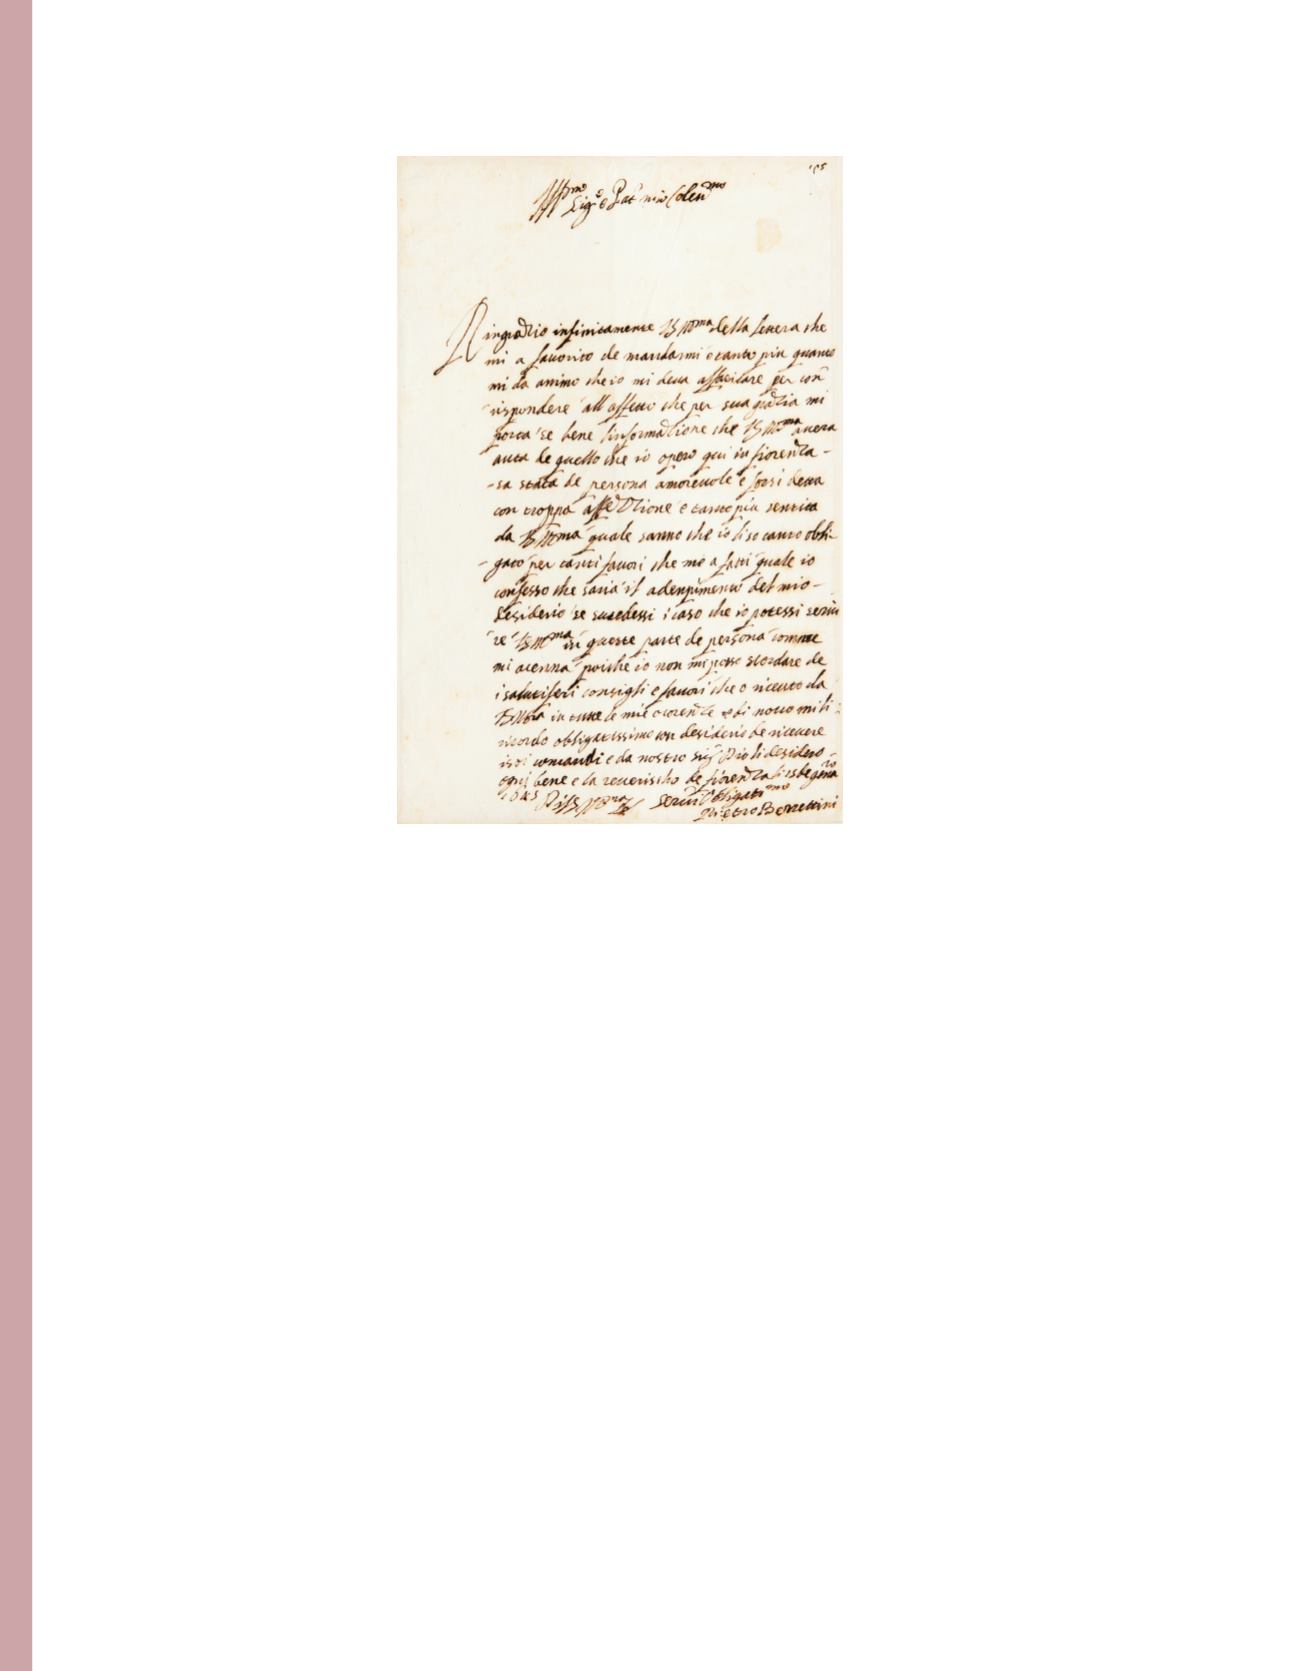 195
Ill.mo
Sig.e e Pat mio Colen.mo
Ringratio infinitamente VS Ill.ma della lettera che
mi a favorito de mandarmi e tanto piu quanto
mi da animo che io mi deva affaticare per cor
rispondere all affetto che per sua gratia mi
porta se bene linformatione che VS Ill.ma avera
auta de quello che io opero qui in fiorenza -
-sa stata de persona amorevole e forsi detta
con troppa affettione e tanto piu sentita
da VS Ill.ma quale sanno che io li so tanto obli-
-gato per tanti favori che me a fatti quale io
confesso che saria il adenpimento del mio -
desiderio se sucedessi i caso che io potessi servi
re VS Ill.ma in queste parte de persona comme
mi acenna poiche io non mi posso scordare de
i salutiferi consigli e favori che o riceuto da
VS Ill.ma in tutte le mie ocorenze e di novo mi li
ricordo obligatissimo con desiderio de ricevere
i soi comandi e da nostro sig Dio li desidero
ogni bene e la reverischo de fiorenza li 15 de
1645 Di VS Ill.ma
Servit Obligatt.mo
Pietro Berrettini